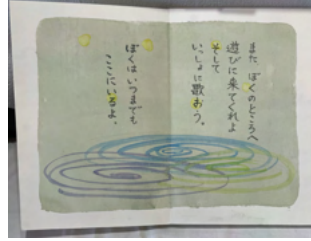 また、ぼくのところへ
遊びに来てくれよ
そして
いっしょに歌おう。
ぼくはいつまでも
ここにいるよ。